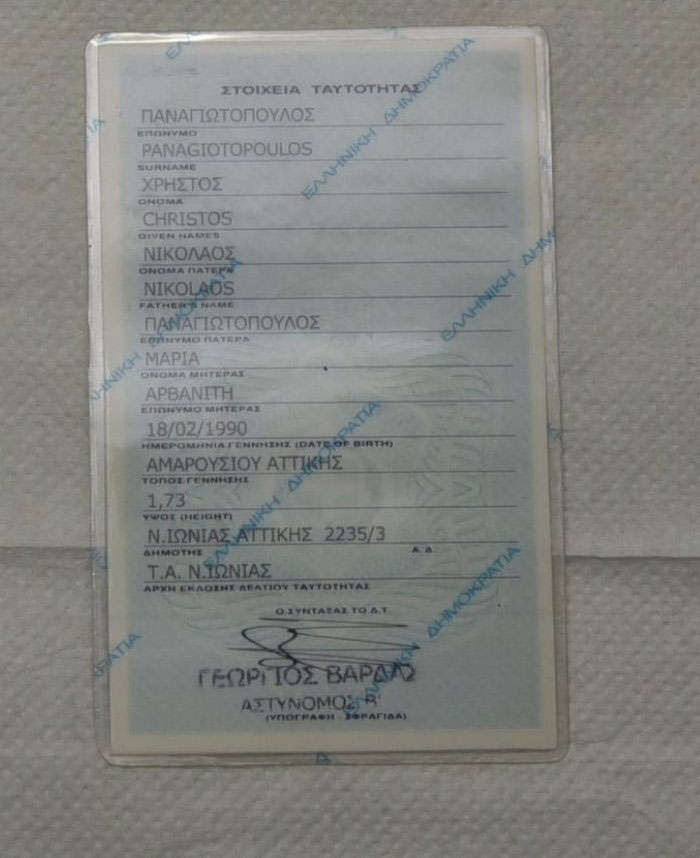 ΣΤΟΙΧΕΙΑ ΤΑΥΤΟΤΗΤΑΣ
ΠΑΝΑΓΙΩΤΟΠΟΥΛΟΣ
ΕΠΩΝΥΜΟ
PANAGIOTOPOULOS
SURNAME
ΧΡΗΣΤΟΣ
ΟΝΟΜΑ
CHRISTOS
GIVEN NAMES
ΝΙΚΟΛΑΟΣ
ΟΝΟΜΑ ΠΑΤΕΡΑ
NIKOLAOS
FATHER'S NAME
ΠΑΝΑΓΙΩΤΟΠΟΥΛΟΣ
ΕΠΩΝΥΜΟ ΠΑΤΕΡΑ
ΜΑΡΙΑ
ΟΝΟΜΑ ΜΗΤΕΡΑΣ
ΑΡΒΑΝΙΤΗ
ΕΠΩΝΥΜΟ ΜΗΤΕΡΑΣ
18/02/1990
ΗΜΕΡΟΜΗΝΙΑ ΓΕΝΝΗΣΗΣ (DATE OF BIRTH)
ΑΜΑΡΟΥΣΙΟΥ ΑΤΤΙΚΗΣ
ΤΟΠΟΣ ΓΕΝΝΗΣΗΣ
1,73
ΥΨΟΣ (HEIGHT)
Ν.ΙΩΝΙΑΣ ΑΤΤΙΚΗΣ 2235/3
ΔΗΜΟΤΗΣ Α.Δ.
Τ.Α. Ν.ΙΩΝΙΑΣ
ΑΡΧΗ ΕΚΔΟΣΗΣ ΔΕΛΤΙΟΥ ΤΑΥΤΟΤΗΤΑΣ
Ο ΣΥΝΤΑΞΑΣ ΤΟ Δ.Τ.
ΓΕΩΡΓΙΟΣ
ΑΣΤΥΝΟΜΟΣ Β'
(ΥΠΟΓΡΑΦΗ - ΣΦΡΑΓΙΔΑ)
ΕΛΛΗΝΙΚΗ ΔΗΜΟΚΡΑΤΙΑ